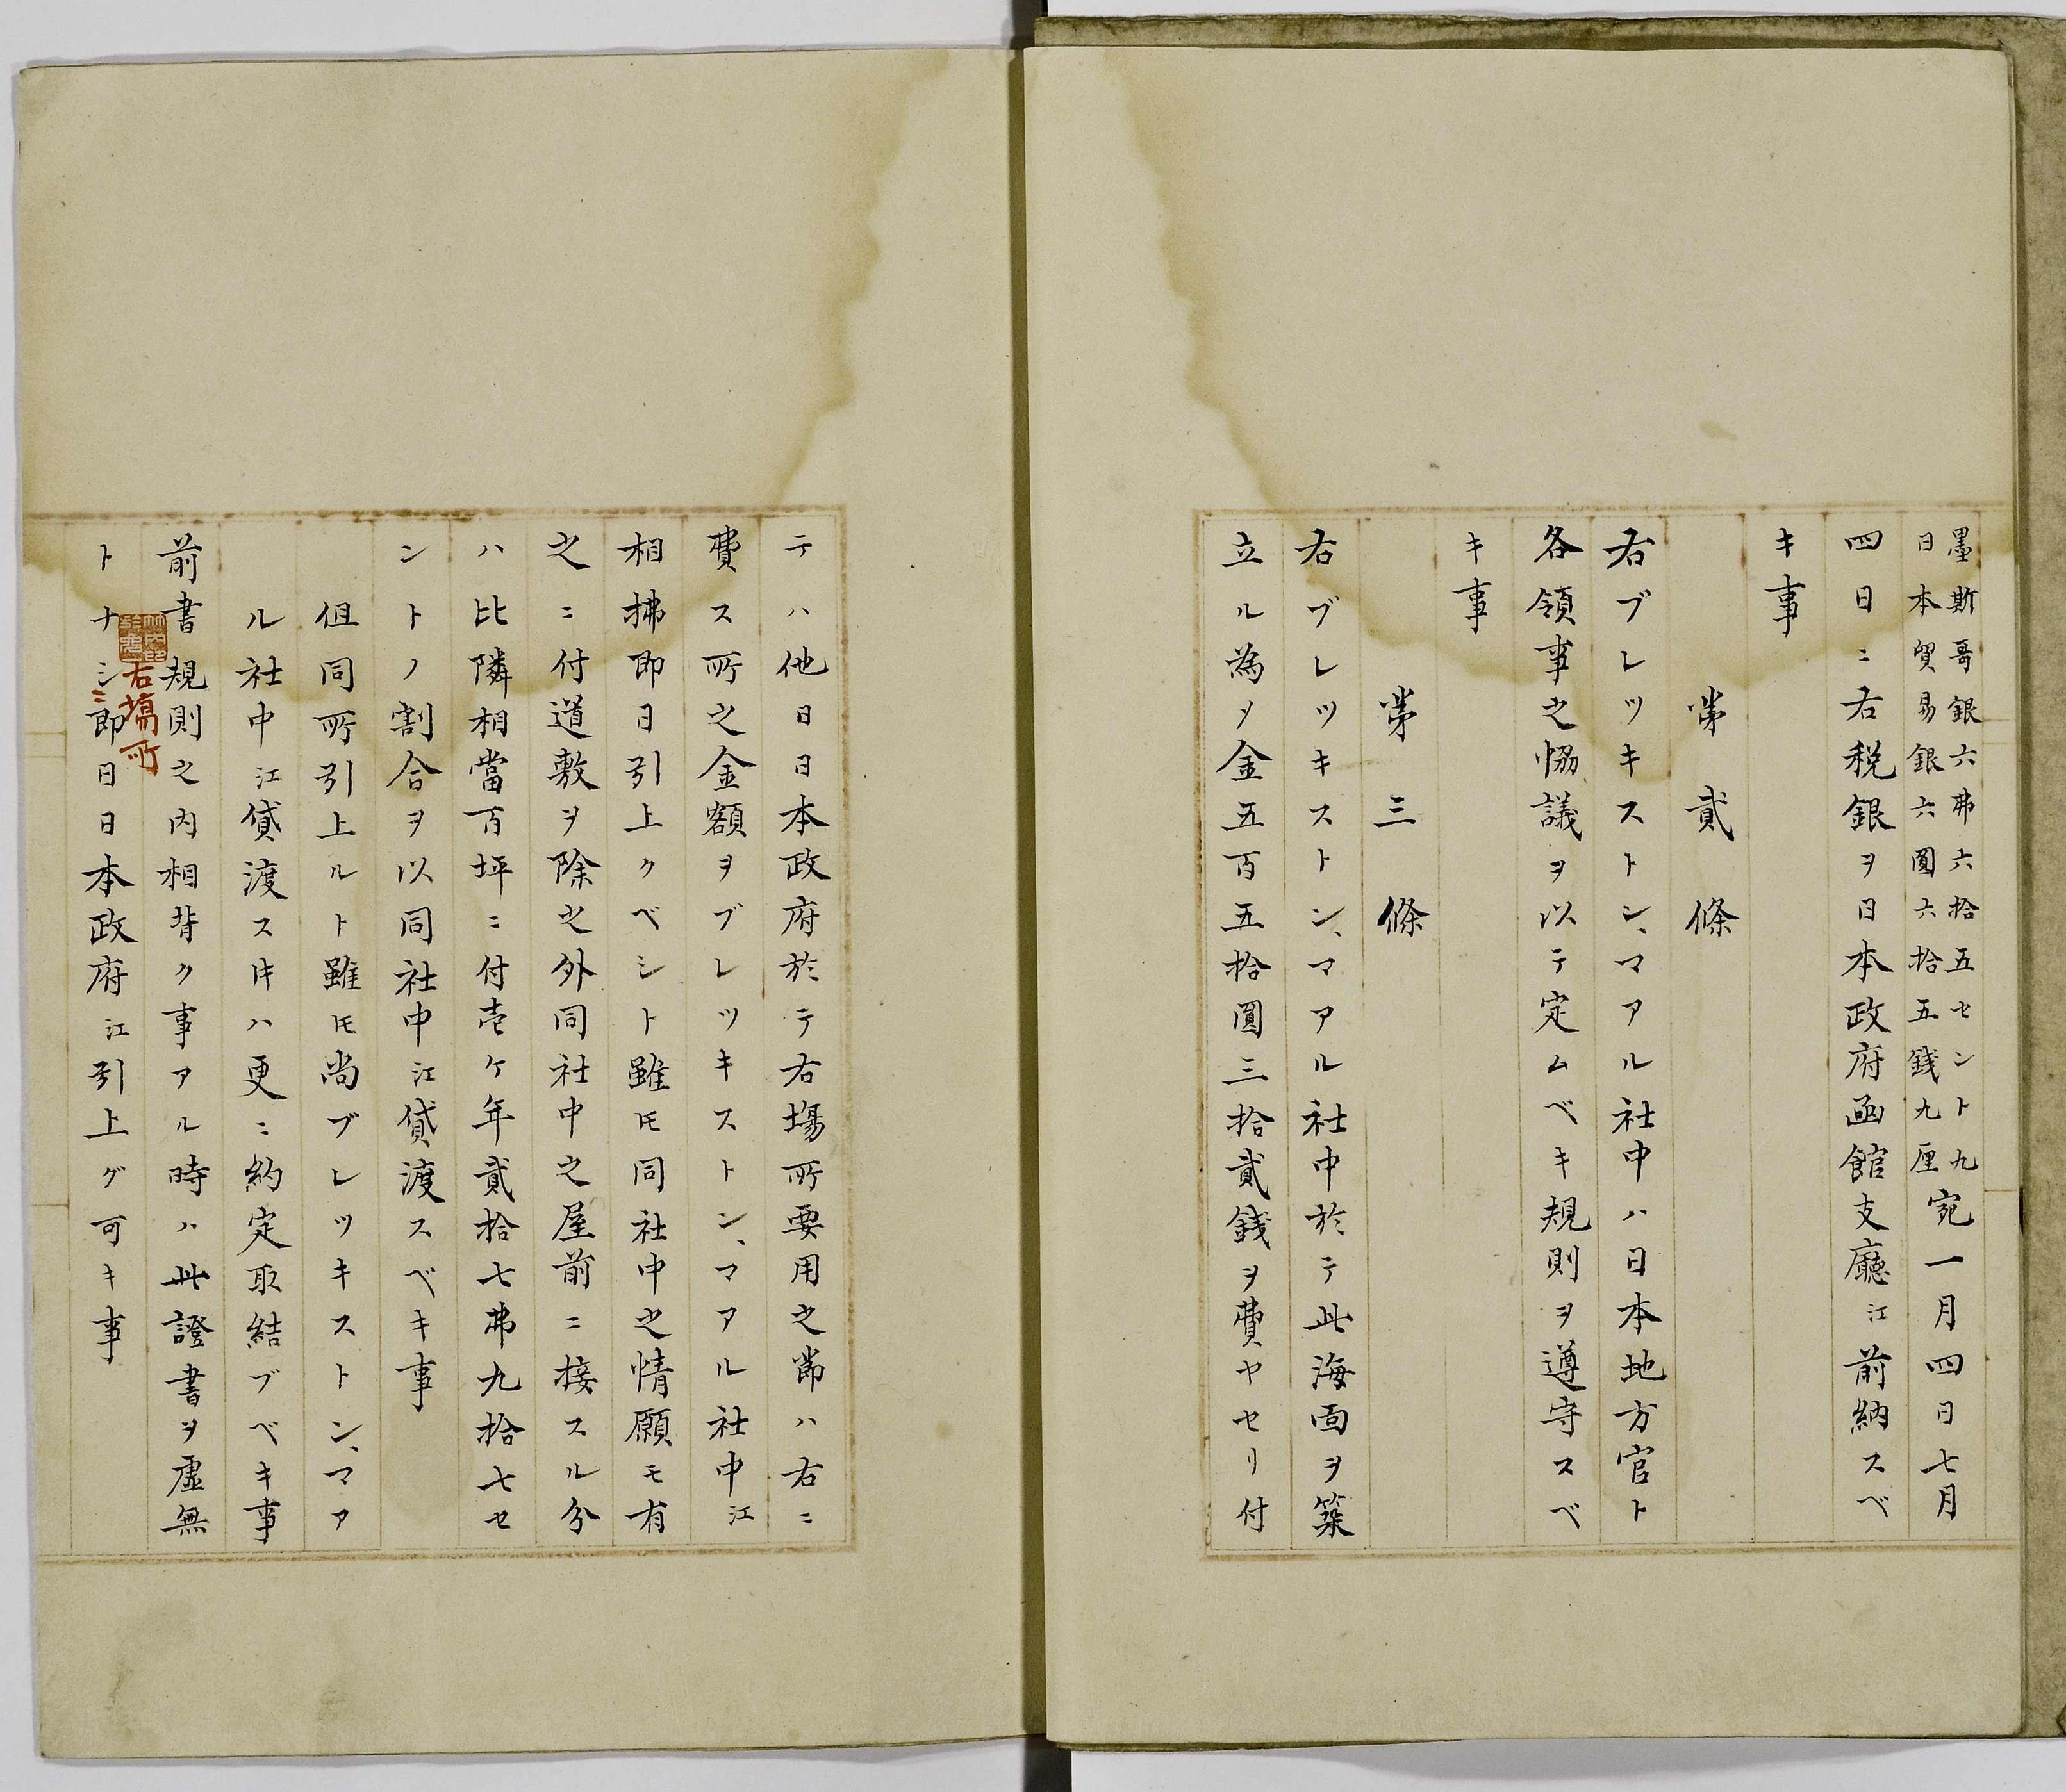 墨斯哥銀六弗六拾五セント九
日本貿易銀六圓六拾五銭九厘
宛一月四日七月
四日ニ右税銀ヲ日本政府函館支廳江前納スベ
キ事
苐貳條
右ブレツキストン、マアル社中ハ日本地方官ト
各領事之恊議ヲ以テ定ムベキ規則ヲ遵守スベ
キ事
苐三條
右ブレツキストン、マアル社中於テ此海面ヲ築
立ル為メ金五百五拾圓三拾貳銭ヲ費ヤセリ付
テハ他日日本政府於テ右場所要用之節ハ右ニ
費ス所之金額ヲブレツキストン、マアル社中江
相拂即日引上クベシト雖𪜈同社中之情願モ有
之ニ付道敷ヲ除之外同社中之屋前ニ接スル分
ハ比隣相當百坪ニ付壱ケ年貳拾七弗九拾七セ
ントノ割合ヲ以同社中江貸渡スベキ事
但同所引上ルト雖𪜈尚ブレツキストン、マア
ル社中江貸渡スキハ更ニ約定取結ブベキ事
前書規則之内相背ク事アル時ハ此證書ヲ虚無
右場所
トナシ即日日本政府江引上ゲ可キ事